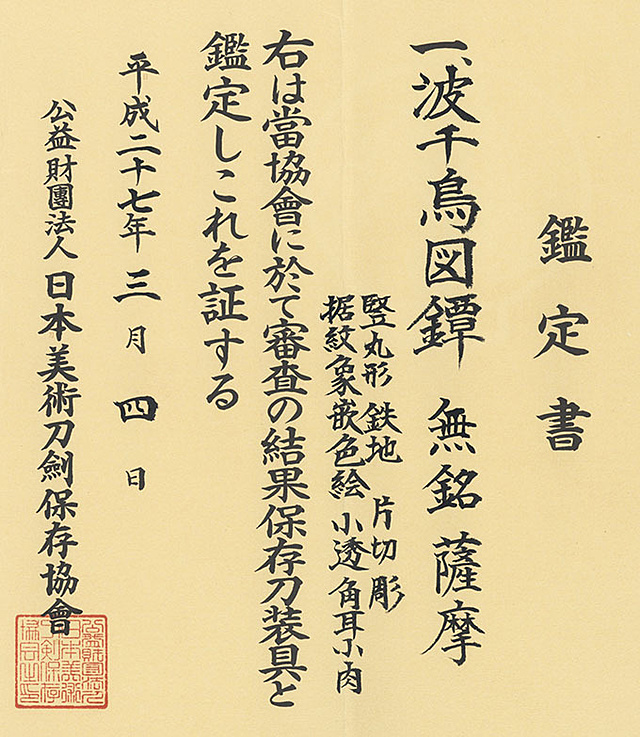 鑑定書
一、波千鳥図鐔 無銘 薩摩
竪丸形 鉄地 片切彫
据紋象嵌色絵 小透 角耳小肉
右は當協會に於て審査の結果保存刀装具と
鑑定しこれを証する
平成二十七年三月四日
公益財團法人 日本美術刀劍保存協會